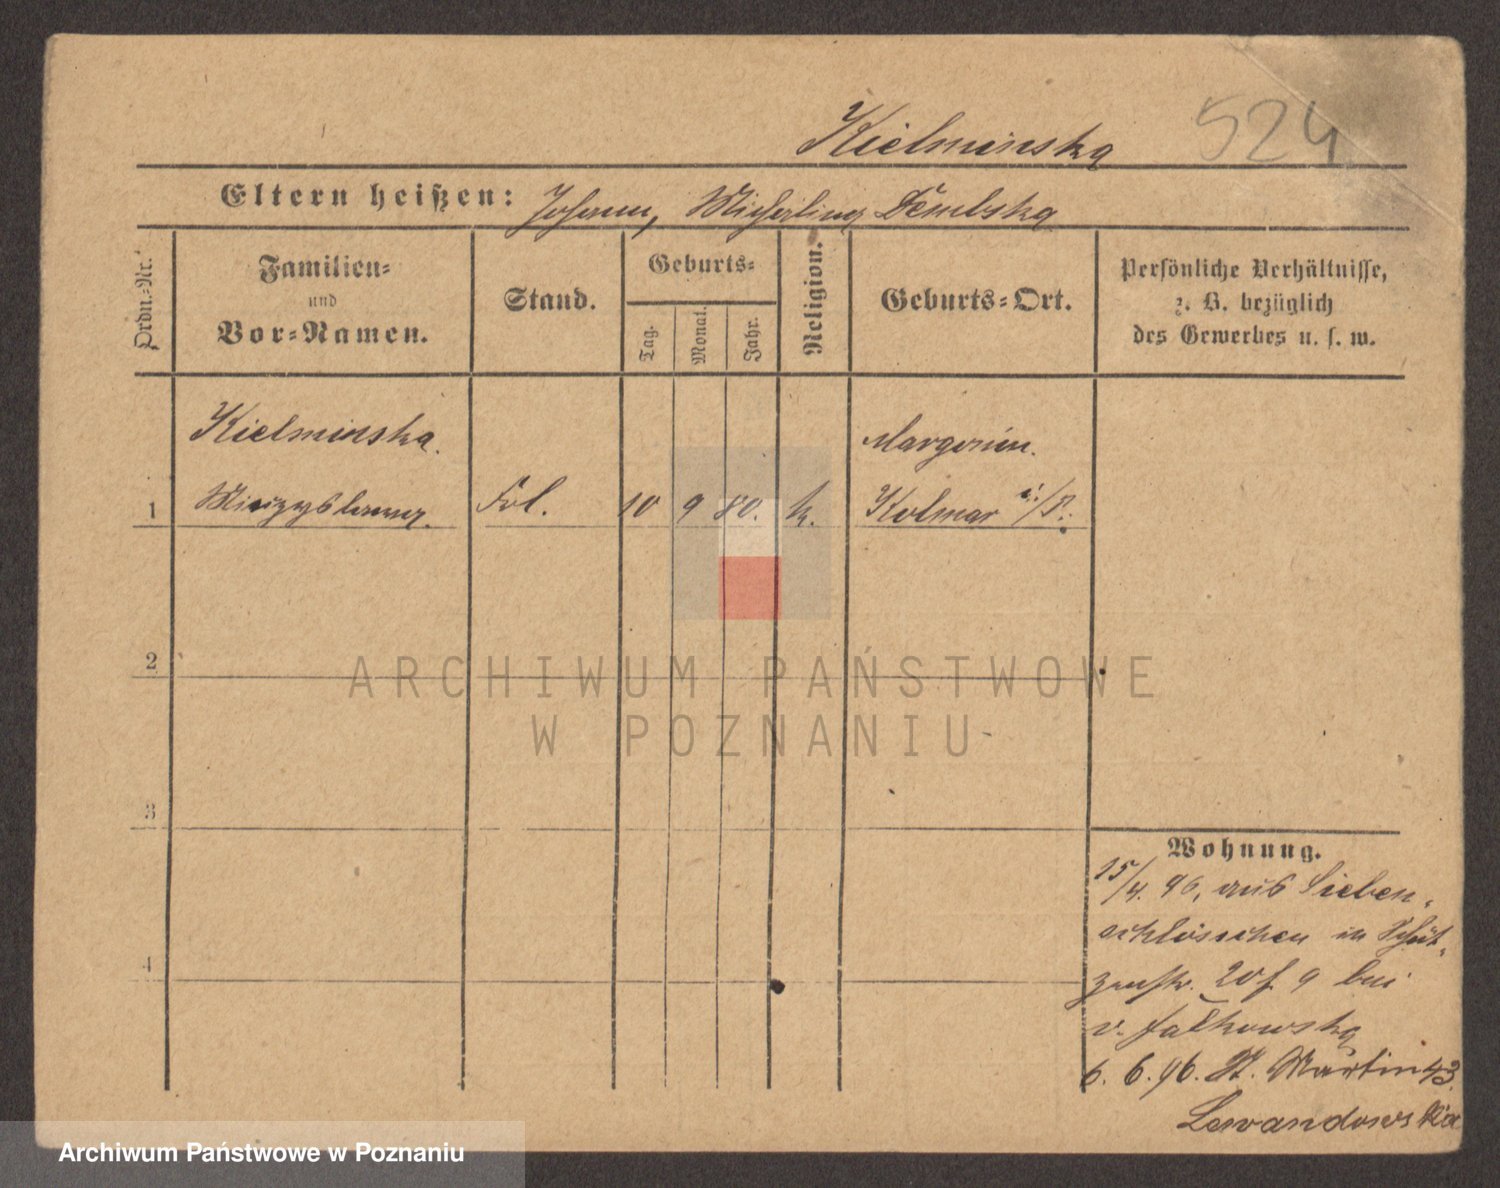 Kielminska 524
Eltern heißen: Johann, Michalina Dembska
Ordn.-Nr.
Familien-
und
Vor-Namen.
Stand.
Geburts-
Tag.
Monat.
Jahr.
Religion.
Geburts-Ort.
Persönliche Verhältnisse,
z. B. bezüglich
des Gewerbes u. s. w.
Kielminska. Margonin.
1 Frl. 10 9 80. k. Kolmar i./P.
2
ARCHIWUM PAŃSTWOWE
W POZNANIU
3
Wohnung.
15/4. 96, aus Sieben-
schlösschen in Schüt-
4
zenstr. 20 f 9 bei
v. Jalkowska
6. 6. 96. St. Martin 43.
Lewandowska
Archiwum Państwowe w Poznaniu